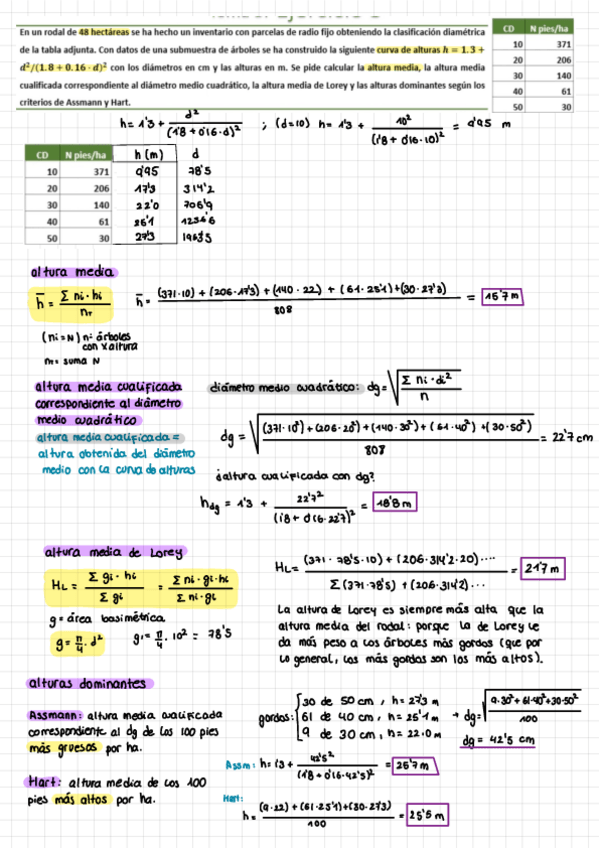 En un rodal de 48 hectáreas se ha hecho un inventario con parcelas de radio fijo obteniendo la clasificación diamétrica
de la tabla adjunta. Con datos de una submuestra de árboles se ha construido la siguiente curva de alturas h = 1.3 +
d²/(1.8 + 0.16 · d)² con los diámetros en cm y las alturas en m. Se pide calcular la altura media, la altura media
cualificada correspondiente al diámetro medio cuadrático, la altura media de Lorey y las alturas dominantes según los
criterios de Assmann y Hart.
CD N pies/ha
10 371
20 206
30 140
40 61
50 30
h = 1'3 + d²/(1'8 + 0'16·d)² ; (d=10) h = 1'3 + 10²/(1'8 + 0'16·10)² = 9'95 m
CD N pies/ha h (m) d
10 371 9'95 78'5
20 206 17'3 314'2
30 140 22'0 706'9
40 61 25'1 1256'6
50 30 27'3 1963'5
altura media
h̄ = Σ ni·hi / nT
h̄ = (371·10) + (206·17'3) + (140·22) + (61·25'1) + (30·27'3) / 808 = 15'7 m
(ni = N) nº árboles
con x altura
nT = suma N
altura media cualificada
correspondiente al diámetro
medio cuadrático
altura media cualificada =
altura obtenida del diámetro
medio con la curva de alturas
diámetro medio cuadrático: dg = √(Σ ni·di² / n)
dg = √((371·10²) + (206·20²) + (140·30²) + (61·40²) + (30·50²) / 808) = 22'7 cm
¿altura cualificada con dg?
hdg = 1'3 + 22'7²/(1'8 + 0'16·22'7)² = 18'8 m
altura media de Lorey
HL = Σ gi·hi / Σ gi = Σ ni·gi·hi / Σ ni·gi
g = área basimétrica
g = π/4 · d²
g1 = π/4 · 10² = 78'5
HL = (371·78'5·10) + (206·314'2·20)···· / Σ (371·78'5) + (206·314'2)··· = 21'7 m
La altura de Lorey es siempre más alta que la
altura media del rodal: porque la de Lorey le
da más peso a los árboles más gordos (que por
lo general, los más gordos son los más altos).
alturas dominantes
Assmann: altura media cualificada
correspondiente al dg de los 100 pies
más gruesos por ha.
gordos: 30 de 50 cm, h = 27'3 m
61 de 40 cm, h = 25'1 m
9 de 30 cm, h = 22.0 m
→ dg = √(9·30² + 61·40² + 30·50² / 100)
dg = 42'5 cm
Assm: h = 1'3 + 42'5²/(1'8 + 0'16·42'5)² = 25'7 m
Hart: altura media de los 100
pies más altos por ha.
Hart:
h = (9·22) + (61·25'1) + (30·27'3) / 100 = 25'5 m